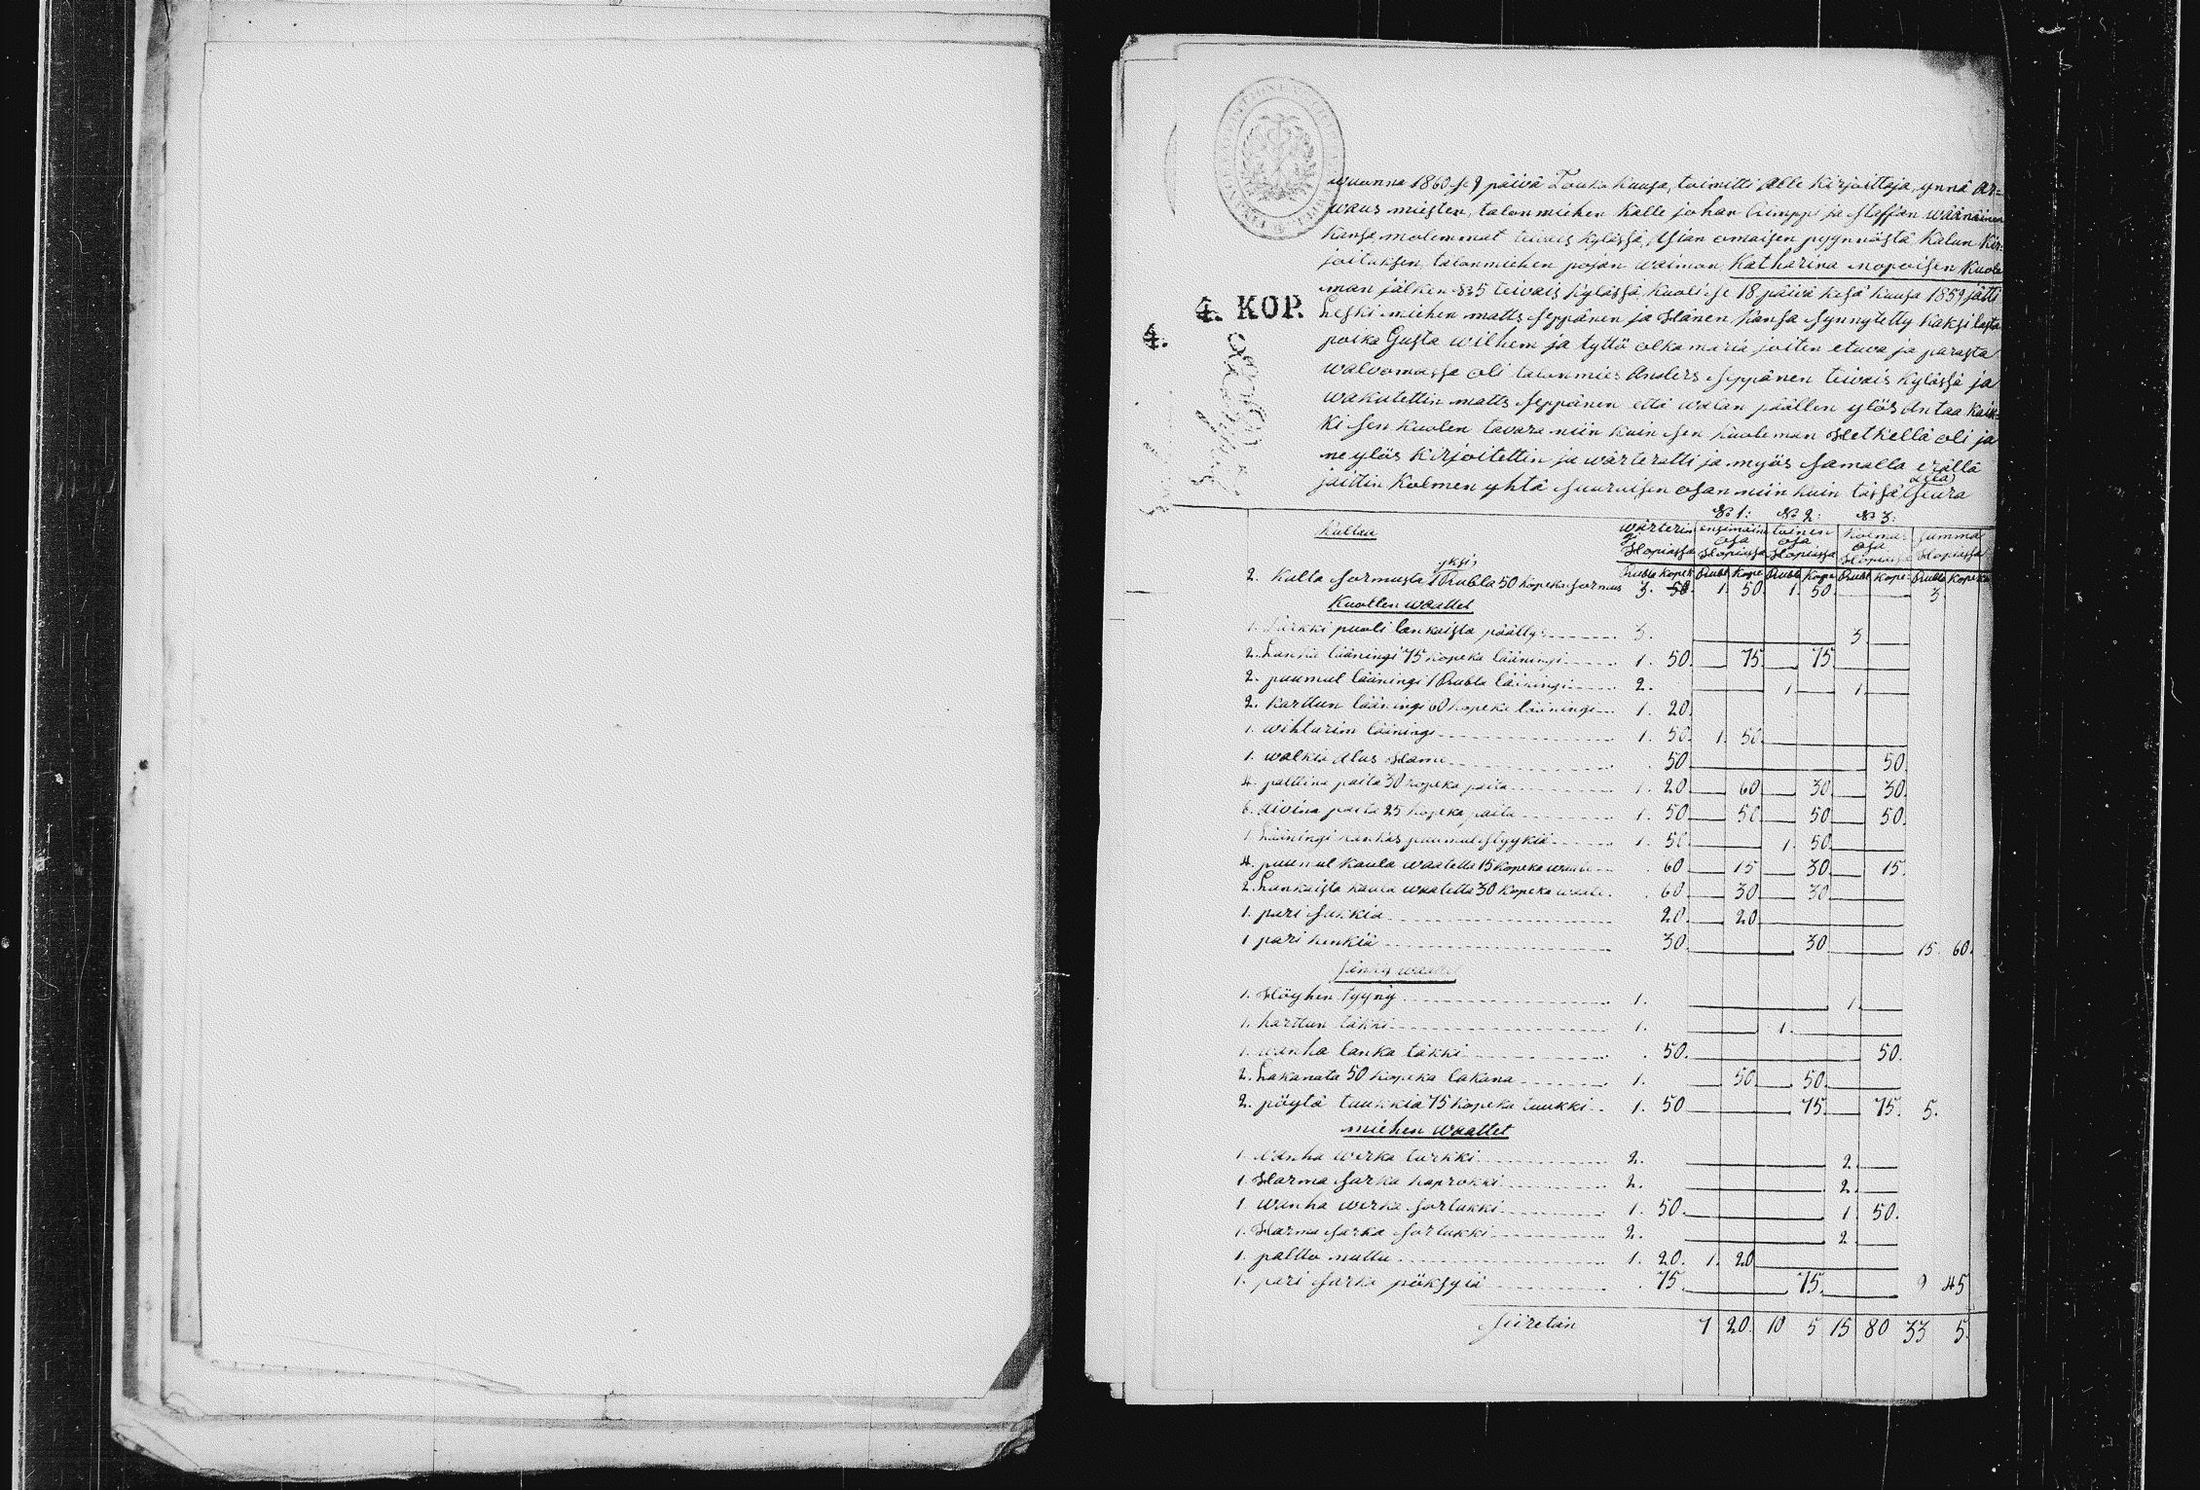 wuonna 1860 se 9 päivä Touko kuusa, toimitti alle kirjoittaja, ynnä ar=
waus miesten, talon miehen Kalle johan Kimppi ja Staffan wäänäinen
kansa molemmat teivais kylässä, Asian omaisen pyynnöstä Kalun Kir=
joituksen, talonmiehen pojan waimon Katharina nopoisen Kuole
man jälken №5 teivais kylässä, kuoli se 18 päivä kesä kuusa 1859 jätti
4. KOP. Leski miehen matts Seppänen ja Hänen kansa synnytetty kaksi lasta
4.
poika Gusta wilhem ja tyttö olka maria joiten etuva ja parasta
walvomassa oli talonmies Anders Seppänen teivais kylässä ja
wakutettin matts Seppänen että walan päällen ylös antaa kaik=
ki sen kuolen tavara niin kuin sen kuoleman Hetkellä oli ja
ne ylös kirjoitettin ja wärteratti ja myös samalla erällä
jaittin Kolmen yhtä suuruisen osan niin kuin tässä alla seura
№ 1: № 2: № 3:
Kultaa wärterin gi Hopiassa ensimäin osa Hopiassa toinen osa Hopiassa kolmas osa Hopiassa summa Hopiassa
Rubla Kopek Rubl Kope Rubla Kope Rubl Kope: Rubla Kopeka
2. Kulta sormusta yksi 1 Rubla 50 kopeka sormus 3. 50. 1. 50. 1. 50. 3
Kuollen waattet
1. turkki puoli lankaista päälly: 3. 3.
2. Lanka lääningi 75 kopeka lääningi 1. 50. 75 75
2. puumul lääningi 1 Rubla lääningi 2. 1. 1.
2. Karttun lääningi 60 kopeka lääningi 1. 20.
1. wihturim lääningi 1. 50. 1. 50
1. walkia Alus Hame 50 50.
4. palttina paita 30 kopeka paita 1. 20 60 30 30.
6. aivina paita 25 kopeka paita 1. 50 50 50 50.
1. Lääningi kankas puumul styykiä 1. 50 1. 50
4. puumul kaula waatetta 15 kopeka waate 60 15 30 15.
2. Lankaista kaula waatetta 30 kopeka waate. 60 30 30
1. pari sukkia 20. 20
1 pari kenkiä 30. 30 15. 60.
1. Höyhen tyyny 1. 1.
1. karttun täkki 1. 1.
1. wanha lanka täkki 50. 50.
2. Lakanata 50 kopeka lakana 1. 50 50.
2. pöytä tuukkia 75 kopeka tuukki 1. 50 75. 75. 5.
miehen waattet
1. wanha werka turkki 2. 2.
1. Harma sarka kaprokki 2. 2.
1. wanha werka sortukki 1. 50. 1. 50.
1. Harma sarka sortukki 2. 2
1. paltto nuttu 1. 20. 1. 20
1. pari sarka pöksyiä 75. 75. 9 45
siiretän 7 20. 10 5 15 80 33 5.